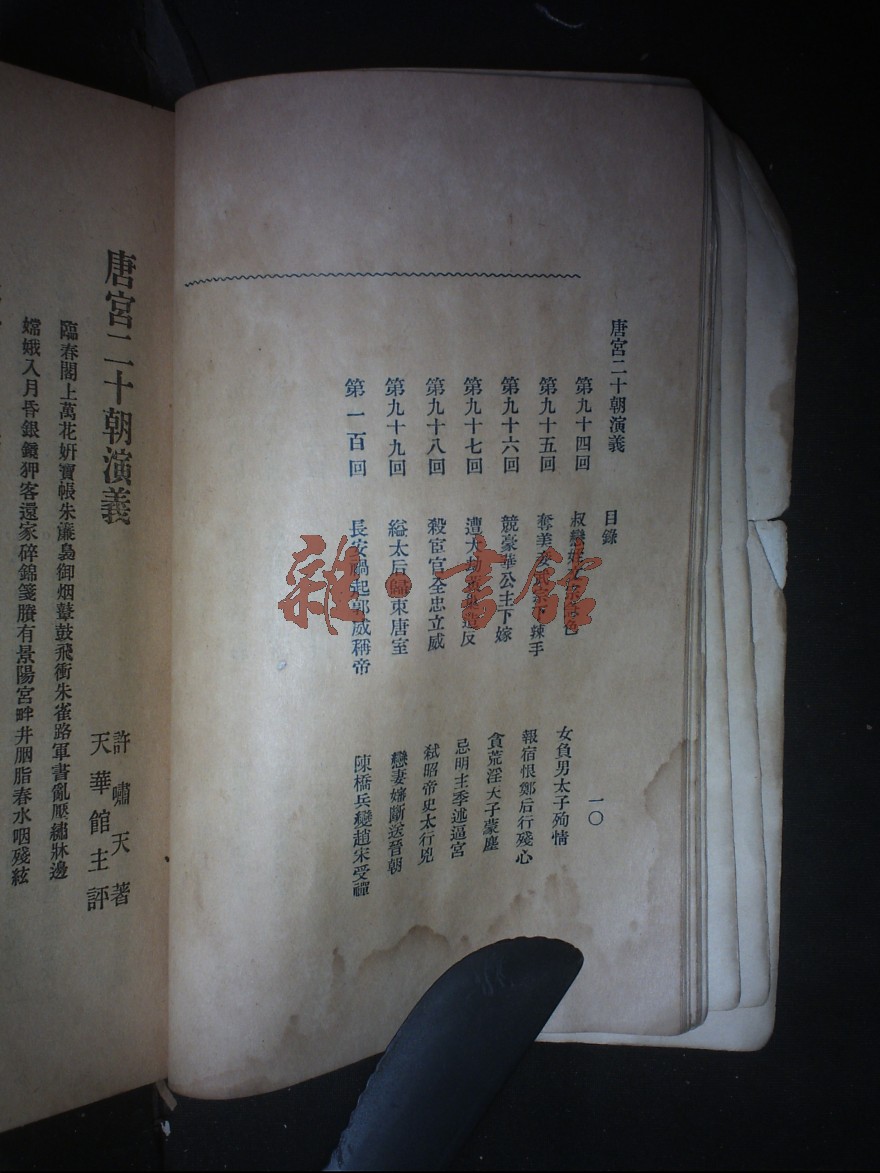 唐宮二十朝演義 目錄 一〇
第九十四回 叔戀姪 色 女負男太子殉情
第九十五回 奪美妾武宗下辣手 報宿恨鄭后行殘心
第九十六回 競豪華公主下嫁 貪荒淫天子蒙塵
第九十七回 遭大劫黃巢造反 忌明主季述逼宮
第九十八回 殺宦官全忠立威 弒昭帝史太行兇
第九十九回 縊太后 束唐室 戀妻孥斷送晉朝
第一百回 長安禍起郭威稱帝 陳橋兵變趙宋受禪
雜書館
唐宮二十朝演義
許嘯天著
天華館主評
臨春閣上萬花妍寶帳朱簾裊御烟鼙鼓飛衝朱雀路軍書亂壓繡牀邊
嫦娥入月昏銀鏡狎客還家碎錦箋賸有景陽宮畔井胭脂春水咽殘絃